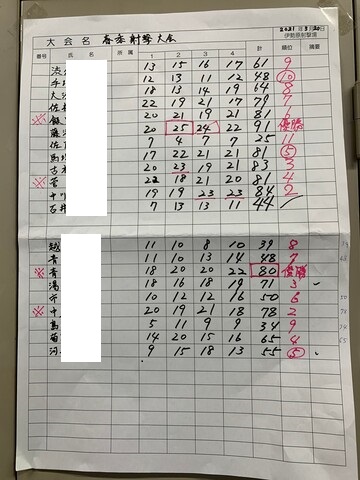 2021年3月20日
大会名 春季射撃大会 伊勢原射撃場
番号 氏名 所属 1 2 3 4 計 順位 摘要
13 15 16 17 61 9
手 12 13 11 12 48 10
大 18 13 14 19 64 8
佐 22 19 21 17 79 7
※ 飯 20 21 19 21 81 6
藤 20 25 24 22 91 優勝
佐 7 4 7 7 25 11
馬 17 22 21 21 81 5
古 20 23 19 21 83 3
※ 菅 22 18 21 20 81 4
中 19 19 23 23 84 2
石井 7 13 13 11 44
越 11 10 8 10 39 8
青 11 10 13 14 48 7
※ 青 18 20 20 22 80 優勝
湯 18 16 18 19 71 3
市 10 12 12 16 50 6
※ 中 20 19 21 18 78 2
島 5 11 9 9 34 9
菊 14 20 15 16 65 4
河 9 15 18 13 55 5